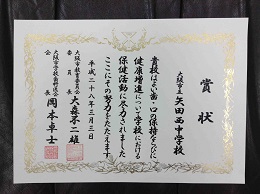 賞状
大阪市立 矢田西中学校
貴校はよい歯・口の保持ならびに
健康増進について学校における
保健活動に尽力されました
ここにその努力をたたえます
平成二十八年三月三日
大阪市教育委員会
委員長 大森不二雄
大阪市学校歯科医会
会長 岡本卓士